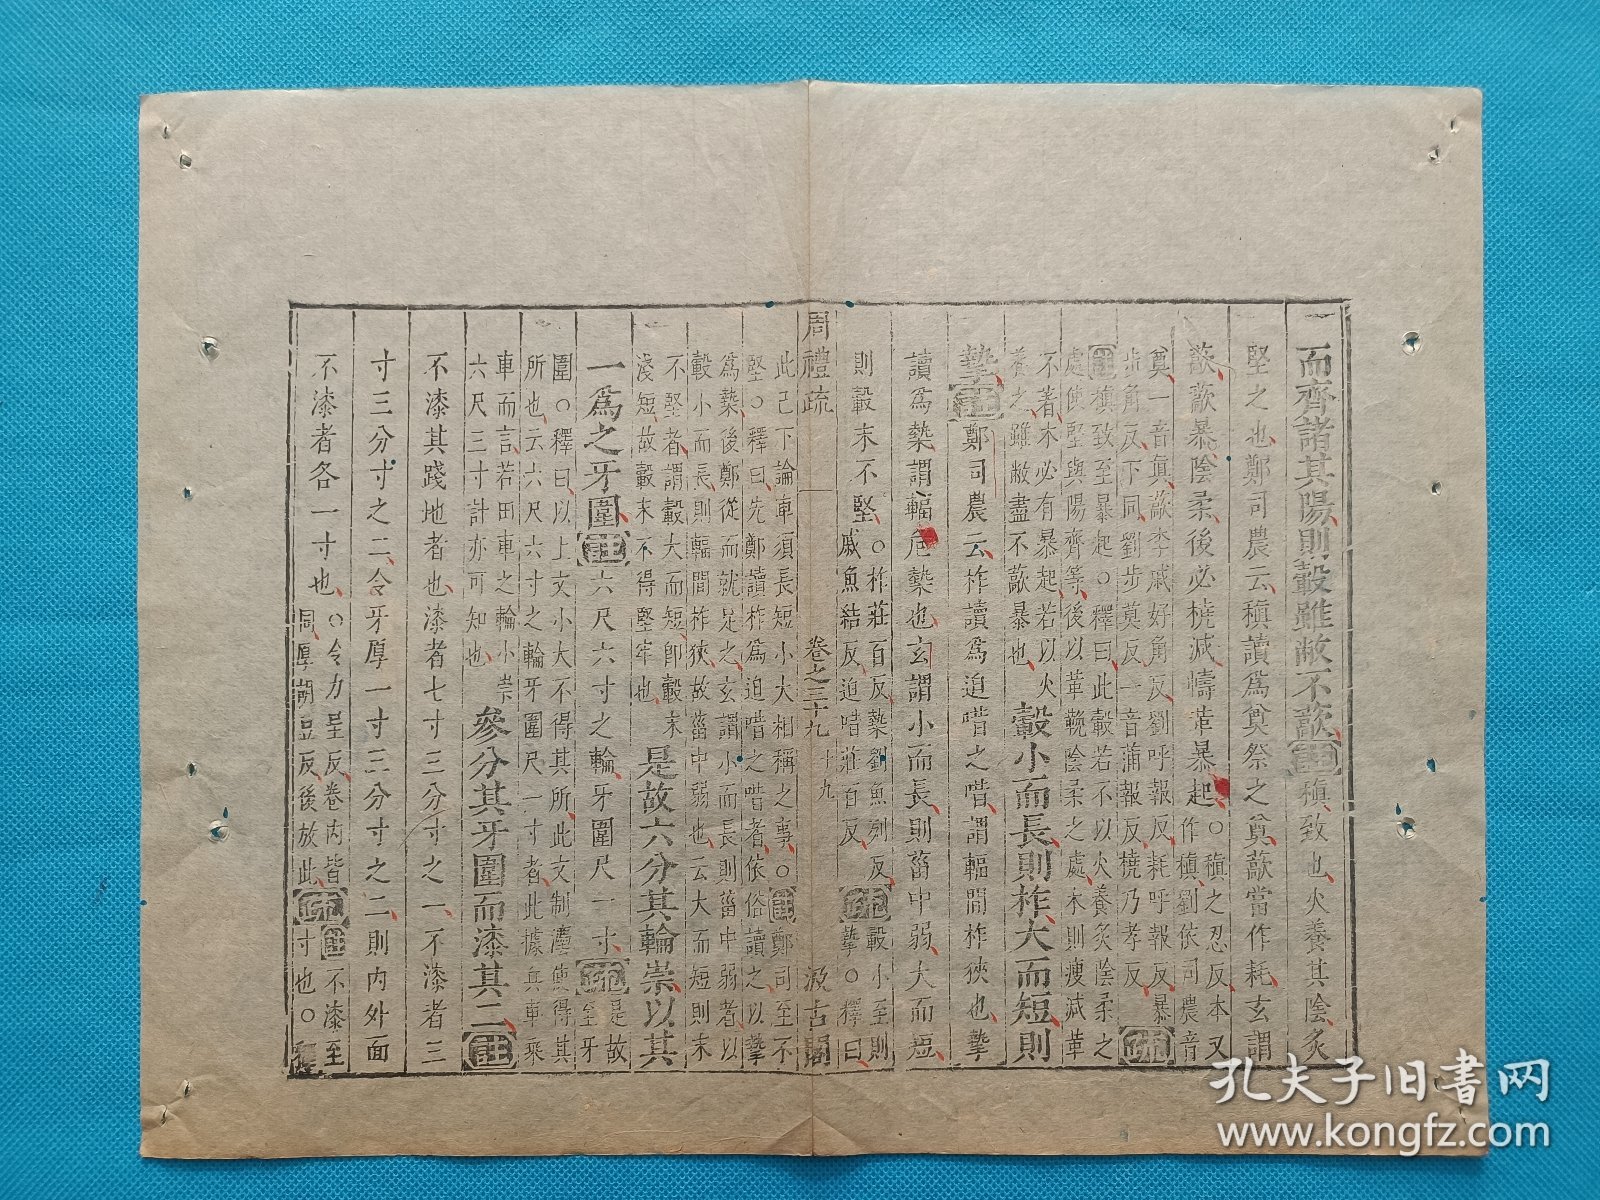 而齊諸其陽則轂雖敝不藃註稹致也火養其陰炙
堅之也鄭司農云稹讀爲奠祭之奠藃當作耗玄謂
藃藃暴陰柔後必橈減幬革暴起○稹之忍反本又作稹劉依司農音
奠一音眞藃李戚好角反劉呼報反耗呼報反暴
步角反下同劉步莫反一音蒲報反橈乃孝反疏
註稹致至暴起○釋曰此轂若不以火養炙陰柔之
處使堅與陽齊等後以革鞔陰柔之處木則瘦減革
不著木必有暴起若以火
養之雖敝盡不藃暴也
轂小而長則柞大而短則
摯註鄭司農云柞讀爲迫唶之唶謂輻間柞狹也摯
讀爲槷謂輻危槷也玄謂小而長則菑中弱大而短
則轂末不堅○柞莊百反槷劉魚列反
戚魚結反迫唶莊百反
疏轂小至則
摯○釋曰
周禮疏 卷之三十九 十九 汲古閣
此已下論車須長短小大相稱之事○註鄭司至不
堅○釋曰先鄭讀柞爲迫唶之唶者依俗讀之以摯
爲槷後鄭從而就足之玄謂小而長則菑中弱者以
轂小而長則輻間柞狹故菑中弱也云大而短則末
不堅者謂轂大而短卽轂末
淺短故轂末不得堅牢也
是故六分其輪崇以其
一爲之牙圍註六尺六寸之輪牙圍尺一寸疏是故至牙
圍○釋曰以上文小大不得其所此文制濃使得其
所也云六尺六寸之輪牙圍尺一寸者此據兵車乘
車而言若田車之輪小崇
六尺三寸計亦可知也
參分其牙圍而漆其二註
不漆其踐地者也漆者七寸三分寸之一不漆者三
寸三分寸之二令牙厚一寸三分寸之二則內外面
不漆者各一寸也○令力呈反卷內皆
同厚胡豆反後放此
疏註不漆至
寸也○釋
孔夫子旧书网
www.kongfz.com